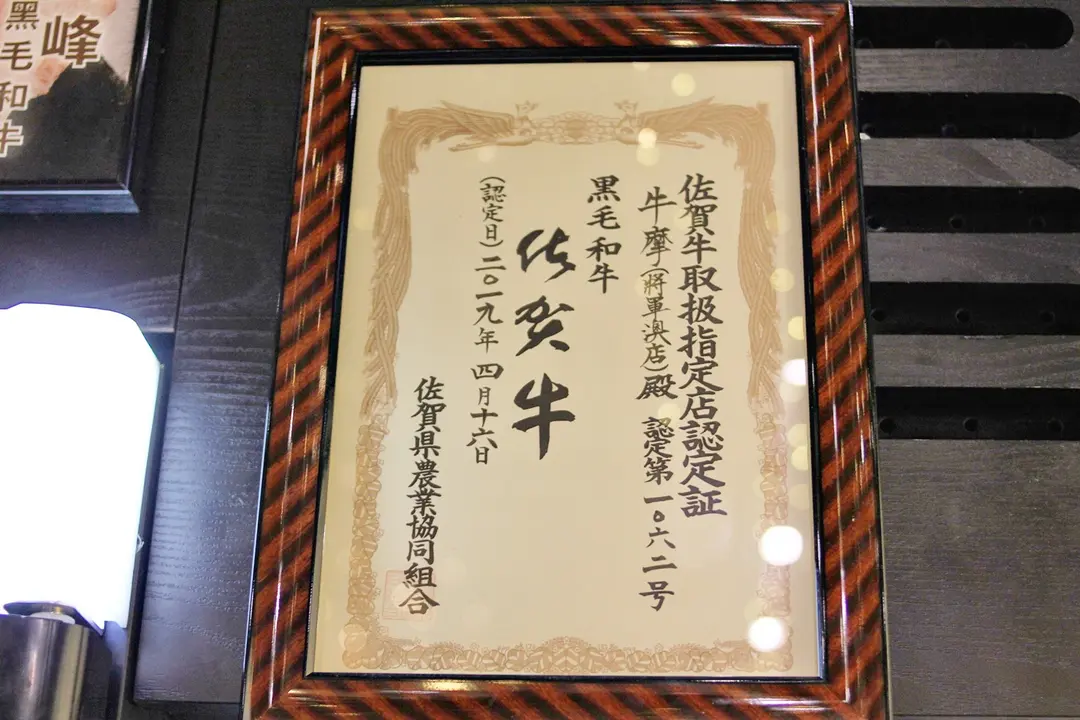 佐賀牛取扱指定店認定証
牛摩(將軍澳店)殿 認定第一〇六二号
黒毛和牛
佐賀牛
(認定日)二〇一九年四月十六日
佐賀県農業協同組合
峰
黑毛和牛